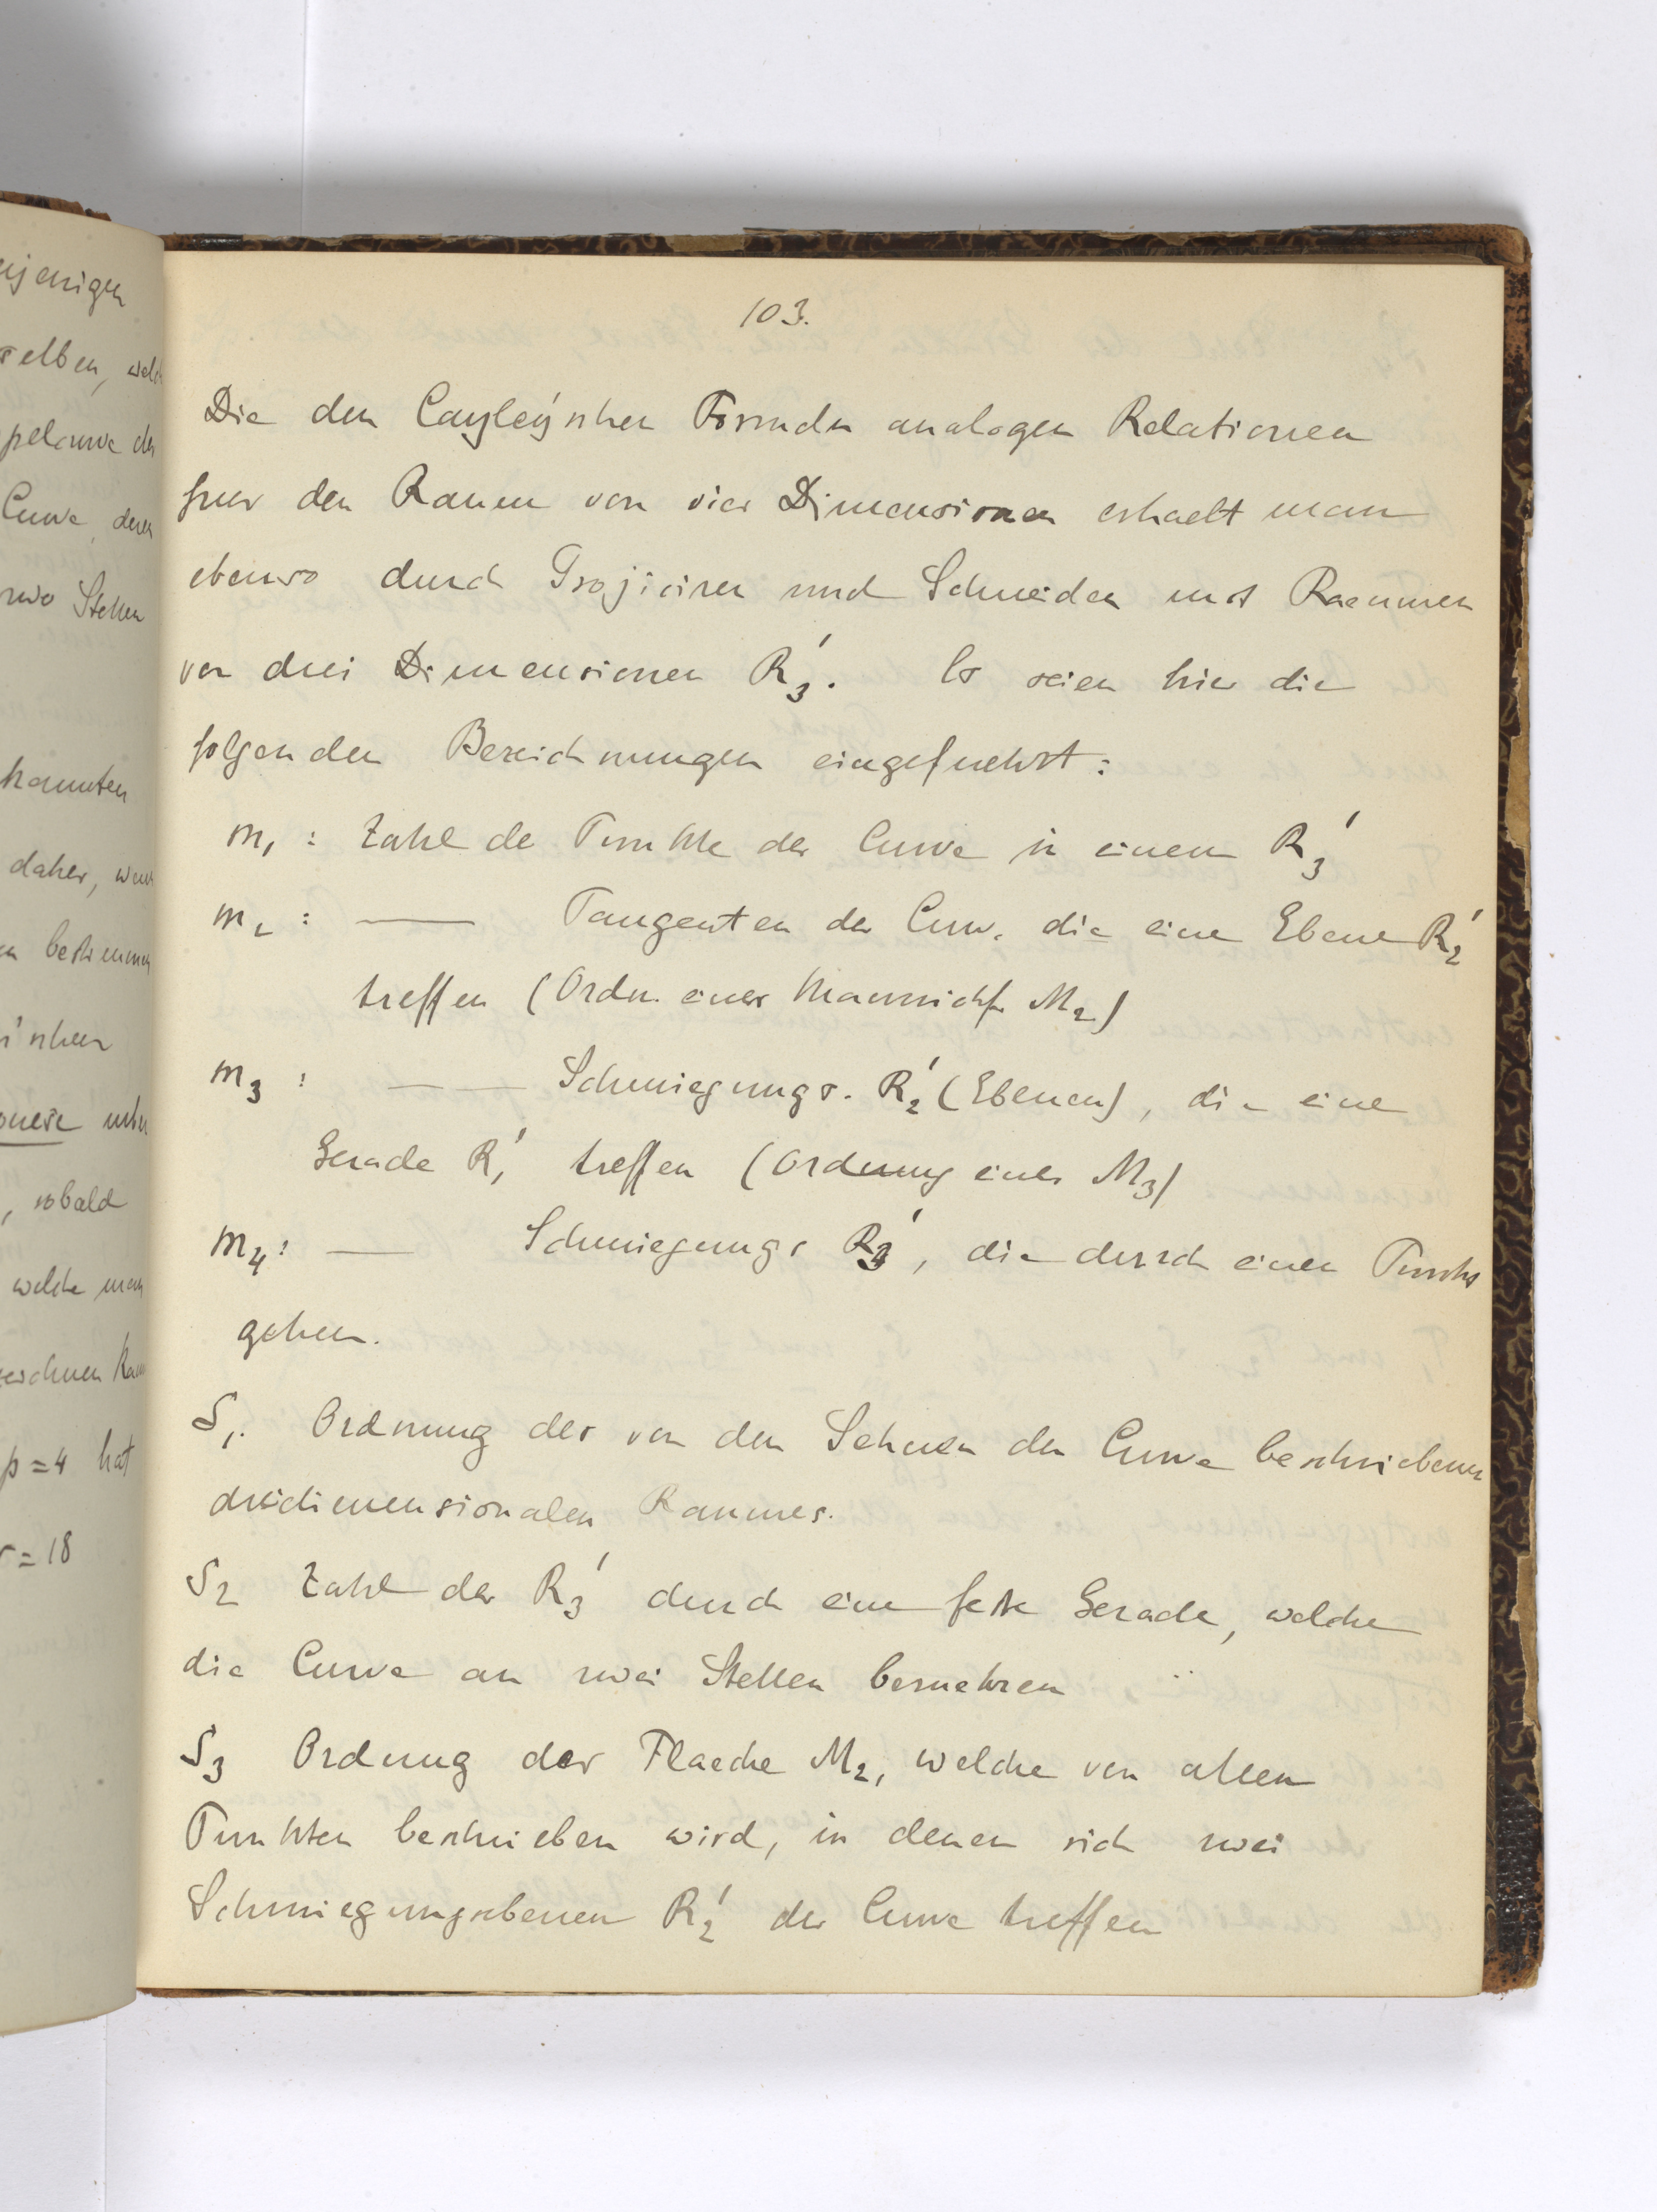 103.
Die den Cayley'schen Formeln analogen Relationen
fuer den Raum von vier Dimensionen erhaelt man
ebenso durch Projiciren und Schneiden mit Raeumen
von drei Dimensionen R'₃. Es seien hier die
folgenden Bezeichnungen eingefuehrt:
m₁ : Zahl de Punkte der Curve in einem R'₃
m₂ : —— Tangenten der Curv. die eine Ebene R'₂
treffen (Ordn. einer Mannichf. M₂)
m₃ : —— Schmiegungs. R'₂ (Ebenen), die eine
Gerade R'₁ treffen (Ordnung einer M₃)
m₄ : —— Schmiegungs R'₃, die durch einen Punkt
gehen.
S₁. Ordnung des von den Sehnen der Curve beschriebenen
dreidimensionalen Raumes.
S₂ Zahl der R'₃ durch eine feste Gerade, welche
die Curve an zwei Stellen beruehren
S₃ Ordnung der Flaeche M₂, welche von allen
Punkten beschrieben wird, in denen sich zwei
Schmiegungsebenen R'₂ der Curve treffen
ejenigen
selben, welch
pelcurve der
Curve, deren
zwo Stellen
kannten
daher, wenn
n bestimmen
schen
, sobald
welche man
p = 4 hat
r = 18